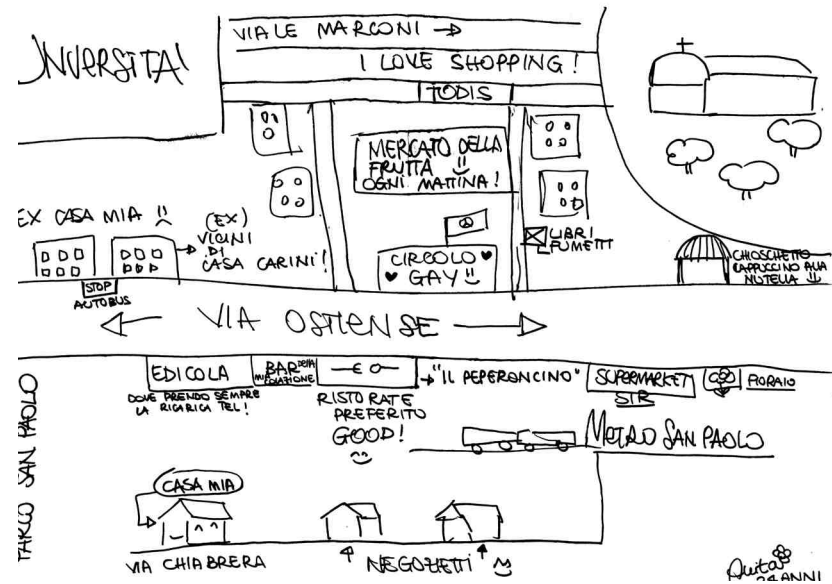 UNVERSITA'
VIALE MARCONI →
I LOVE SHOPPING!
TODIS
MERCATO DELLA
FRUTTA
OGNI MATTINA!
EX CASA MIA
(EX)
VICINI
DI
CASA CARINI!
STOP
AUTOBUS
CIRCOLO
GAY
LIBRI
FUMETTI
CHIOSCHETTO
CAPPUCCINO ALLA
NUTELLA
VIA OSTIENSE
EDICOLA
DOVE PRENDO SEMPRE
LA RICARICA TEL!
BAR DELLA
MIA COLAZIONE
RISTORATE
PREFERITO
GOOD!
"IL PEPERONCINO"
SUPERMARKET
SIR
FIORAIO
METRO SAN PAOLO
PARCO SAN PAOLO
CASA MIA
VIA CHIABRERA
NEGOZIETTI
24 ANNI